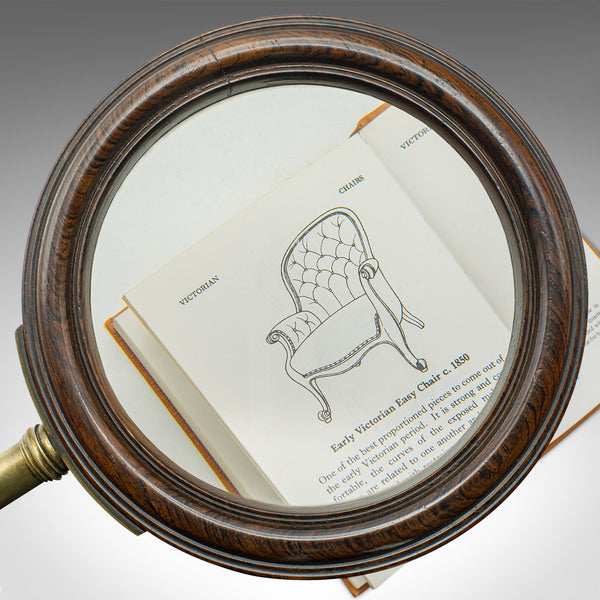 VICTORIAN
CHAIRS
Early Victorian Easy Chair c. 1850
One of the best proportioned pieces to come out of
the early Victorian period. It is strong and
fortable, the curves of the exposed
are related to one another and
VICTOR